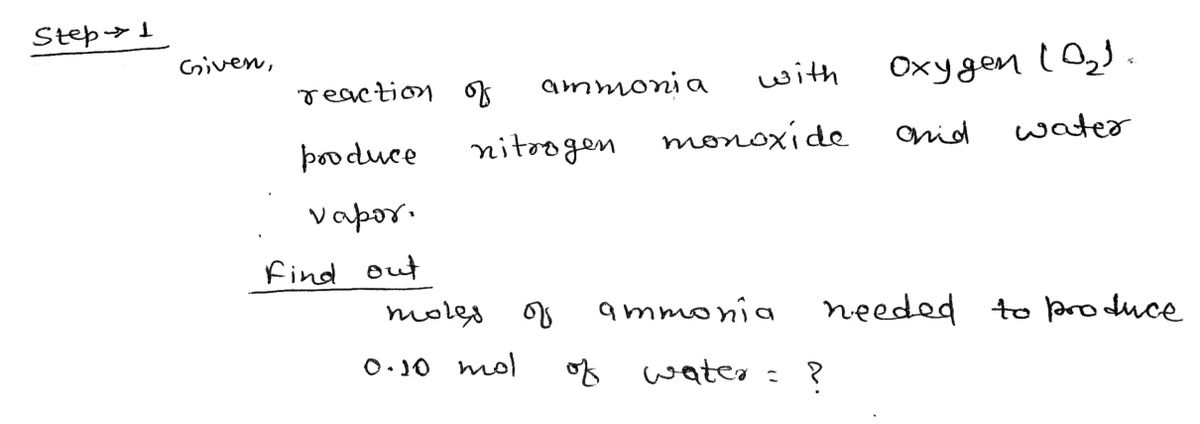 Step → 1
Given,
reaction of ammonia with oxygen (O₂).
produce nitrogen monoxide and water
vapor.
Find out
moles of ammonia needed to produce
0.10 mol of water = ?